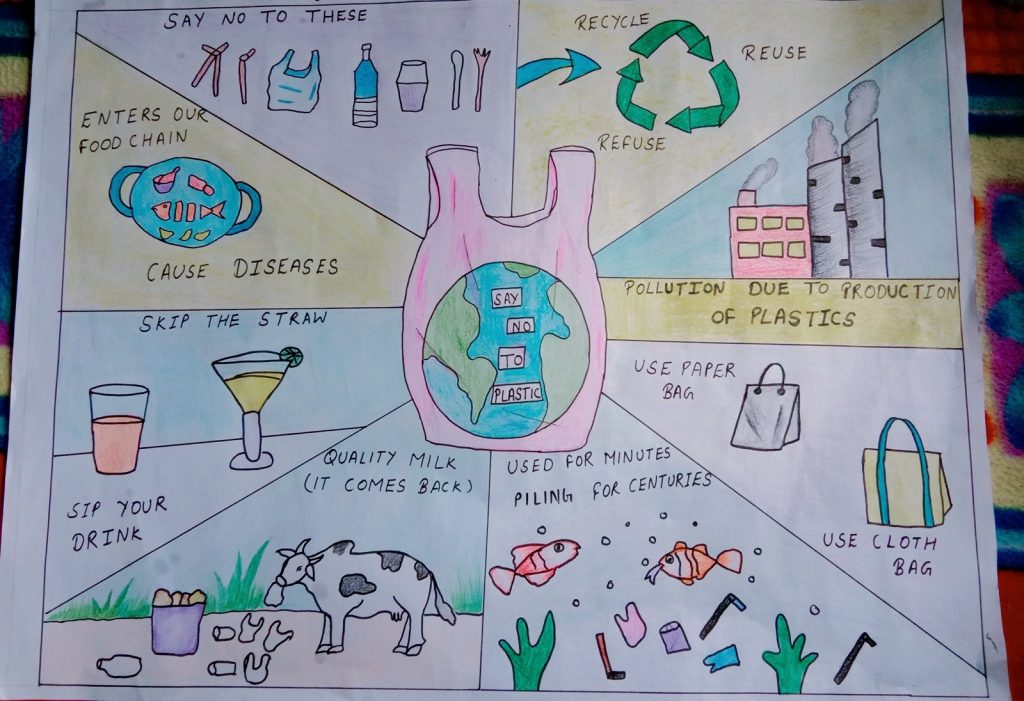 SAY NO TO THESE
RECYCLE
REUSE
REFUSE
ENTERS OUR
FOOD CHAIN
CAUSE DISEASES
POLLUTION DUE TO PRODUCTION
OF PLASTICS
SAY
NO
TO
PLASTIC
SKIP THE STRAW
SIP YOUR
DRINK
USE PAPER
BAG
USE CLOTH
BAG
QUALITY MILK
(IT COMES BACK)
USED FOR MINUTES
PILING FOR CENTURIES